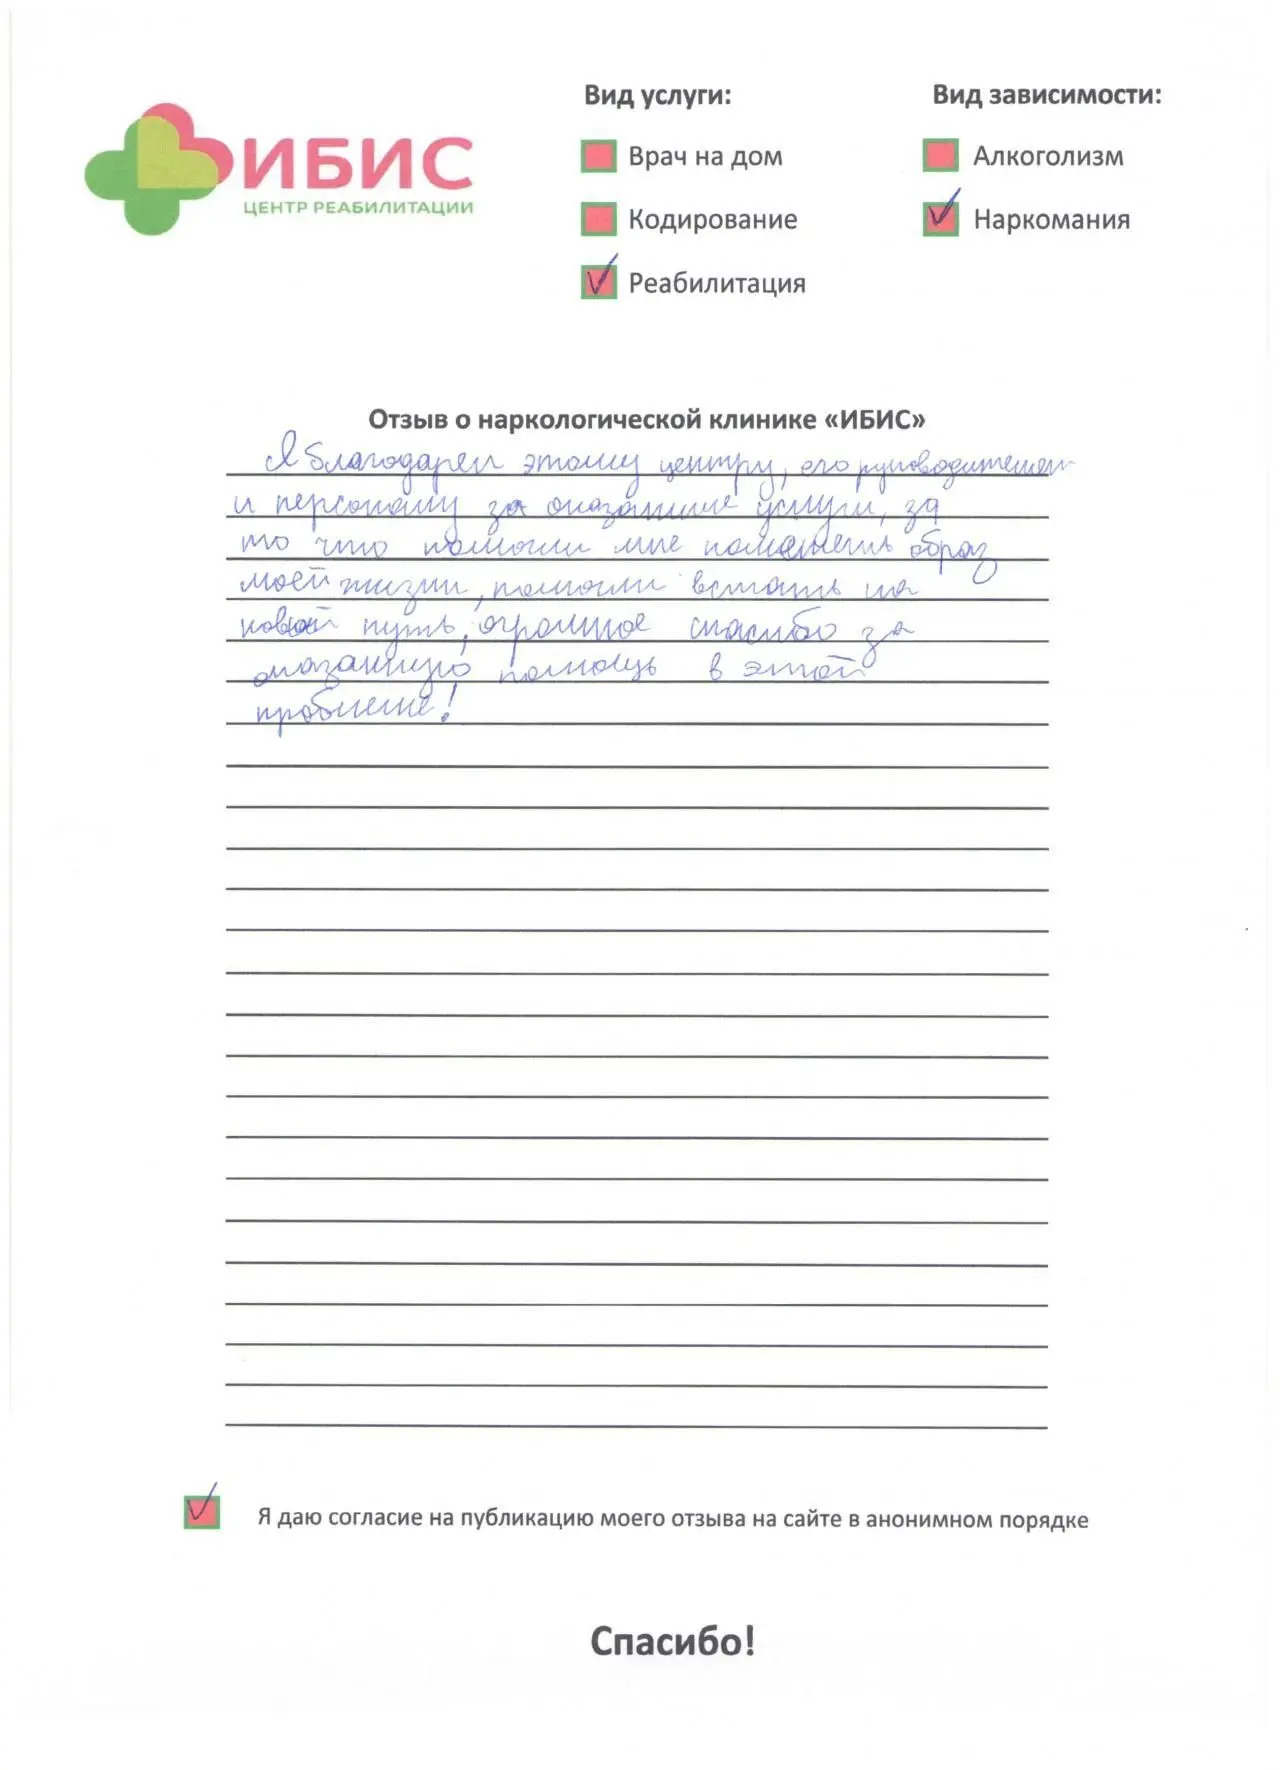 ИБИС
ЦЕНТР РЕАБИЛИТАЦИИ
Вид услуги:
Врач на дом
Кодирование
Реабилитация
Вид зависимости:
Алкоголизм
Наркомания
Отзыв о наркологической клинике «ИБИС»
Я благодарен этому центру, его руководителям
и персоналу за оказанные услуги, за
то что помогли мне поменять образ
моей жизни, помогли встать на
новый путь, огромное спасибо за
оказанную помощь в этой
проблеме!
Я даю согласие на публикацию моего отзыва на сайте в анонимном порядке
Спасибо!